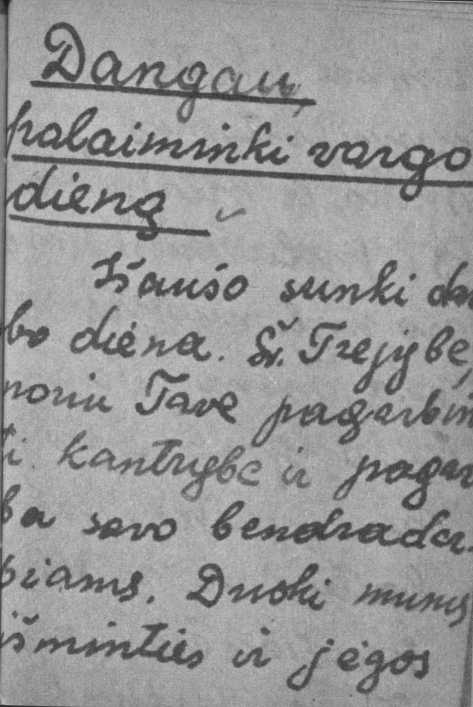 Dangau,
palaiminki vargo
dieną
Išaušo sunki dar
bo diena. Šv. Trejybe,
noriu Tave pagarbin
ti kantrybe ir pagar
ba savo bendradar
biams. Duoki mums
išminties ir jėgos